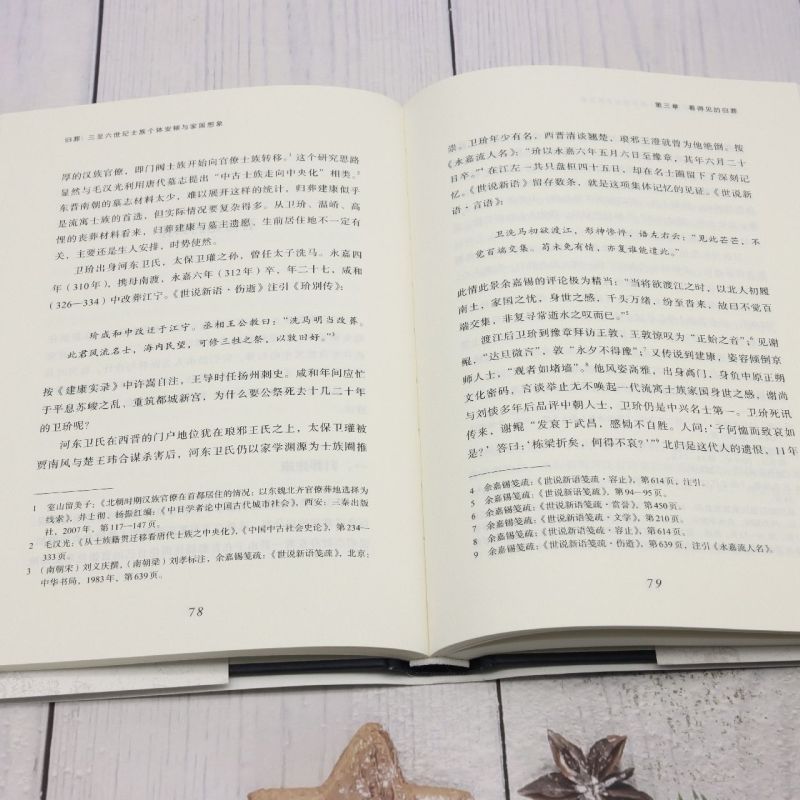 归葬：三至六世纪士族个体安顿与家国想象
厚的汉族官僚，即门阀士族开始向官僚士族转移。1 这个研究思路
显然与毛汉光利用唐代墓志提出“中古士族走向中央化”相类。2
东晋南朝的墓志材料太少，难以展开这样的统计，归葬建康似乎
是流寓士族的首选，但实际情况要复杂得多。从卫玠、温峤、高
悝的丧葬材料看来，归葬建康与墓主遗愿、生前居住地不一定有
关，主要还是生人安排，时势使然。
卫玠出身河东卫氏，太保卫瓘之孙，曾任太子洗马。永嘉四
年（310年），携母南渡，永嘉六年（312年）卒，年二十七，咸和
（326—334）中改葬江宁。《世说新语·伤逝》注引《玠别传》：
玠咸和中改迁于江宁。丞相王公教曰：“洗马明当改葬。
此君风流名士，海内民望，可修三牲之祭，以敦旧好。”3
按《建康实录》中许嵩自注，王导时任扬州刺史。咸和年间应忙
于平息苏峻之乱、重筑都城新宫，为什么要公祭死去十几二十年
的卫玠呢？
河东卫氏在西晋的门户地位犹在琅邪王氏之上，太保卫瓘被
贾南风与楚王玮合谋杀害后，河东卫氏仍以家学渊源为士族圈推
1 室山留美子：《北朝时期汉族官僚在首都居住的情况：以东魏北齐官僚葬地选择为
线索》，井上彻、杨振红编：《中日学者论中国古代城市社会》，西安：三秦出版
社，2007年，第117—147页。
2 毛汉光：《从士族籍贯迁移看唐代士族之中央化》，《中国中古社会史论》，第234—
333页。
3 （南朝宋）刘义庆撰，（南朝梁）刘孝标注，余嘉锡笺疏：《世说新语笺疏》，北京：
中华书局，1983年，第639页。
78
第三章 看得见的归葬
崇。卫玠年少有名，西晋清谈翘楚，琅邪王澄就曾为他绝倒。按
《永嘉流人名》：“玠以永嘉六年五月六日至豫章，其年六月二十
日卒。”4 在江左一共只盘桓四十五天，却在名士圈留下了深刻记
忆。《世说新语》留存数条，就是这项集体记忆的见证。《世说新
语·言语》：
卫洗马初欲渡江，形神惨悴，语左右云：“见此芒芒，不
觉百端交集。苟未免有情，亦复谁能遣此。”
此情此景余嘉锡的评论极为精当：“当将欲渡江之时，以北人初履
南土，家国之忧，身世之感，千头万绪，纷至沓来，故曰不觉百
端交集，非复寻常逝水之叹而已。”5
渡江后卫玠到豫章拜访王敦，王敦惊叹为“正始之音”；6 见谢
鲲，“达旦微言”，敦“永夕不得豫”；7 又传说到建康，姿容倾倒京
师人士，“观者如堵墙”。8 他风姿高雅，出身高门，身负中原正朔
文化密码，言谈举止无不唤起一代流寓士族家国身世之感，谢尚
与刘惔多年后品评中朝人士，卫玠仍是中兴名士第一。卫玠死讯
传来，谢鲲“发哀于武昌，感恸不自胜。人问：‘子何恤而致哀如
是？’答曰：‘栋梁折矣，何得不哀？’”9 北归是这代人的遗恨，11年
4 余嘉锡笺疏：《世说新语笺疏·容止》，第614页，注引。
5 余嘉锡笺疏：《世说新语笺疏》，第94—95页。
6 余嘉锡笺疏：《世说新语笺疏·赏誉》，第450页。
7 余嘉锡笺疏：《世说新语笺疏·文学》，第210页。
8 余嘉锡笺疏：《世说新语笺疏·容止》，第614页。
9 余嘉锡笺疏：《世说新语笺疏·伤逝》，第639页，注引《永嘉流人名》。
79